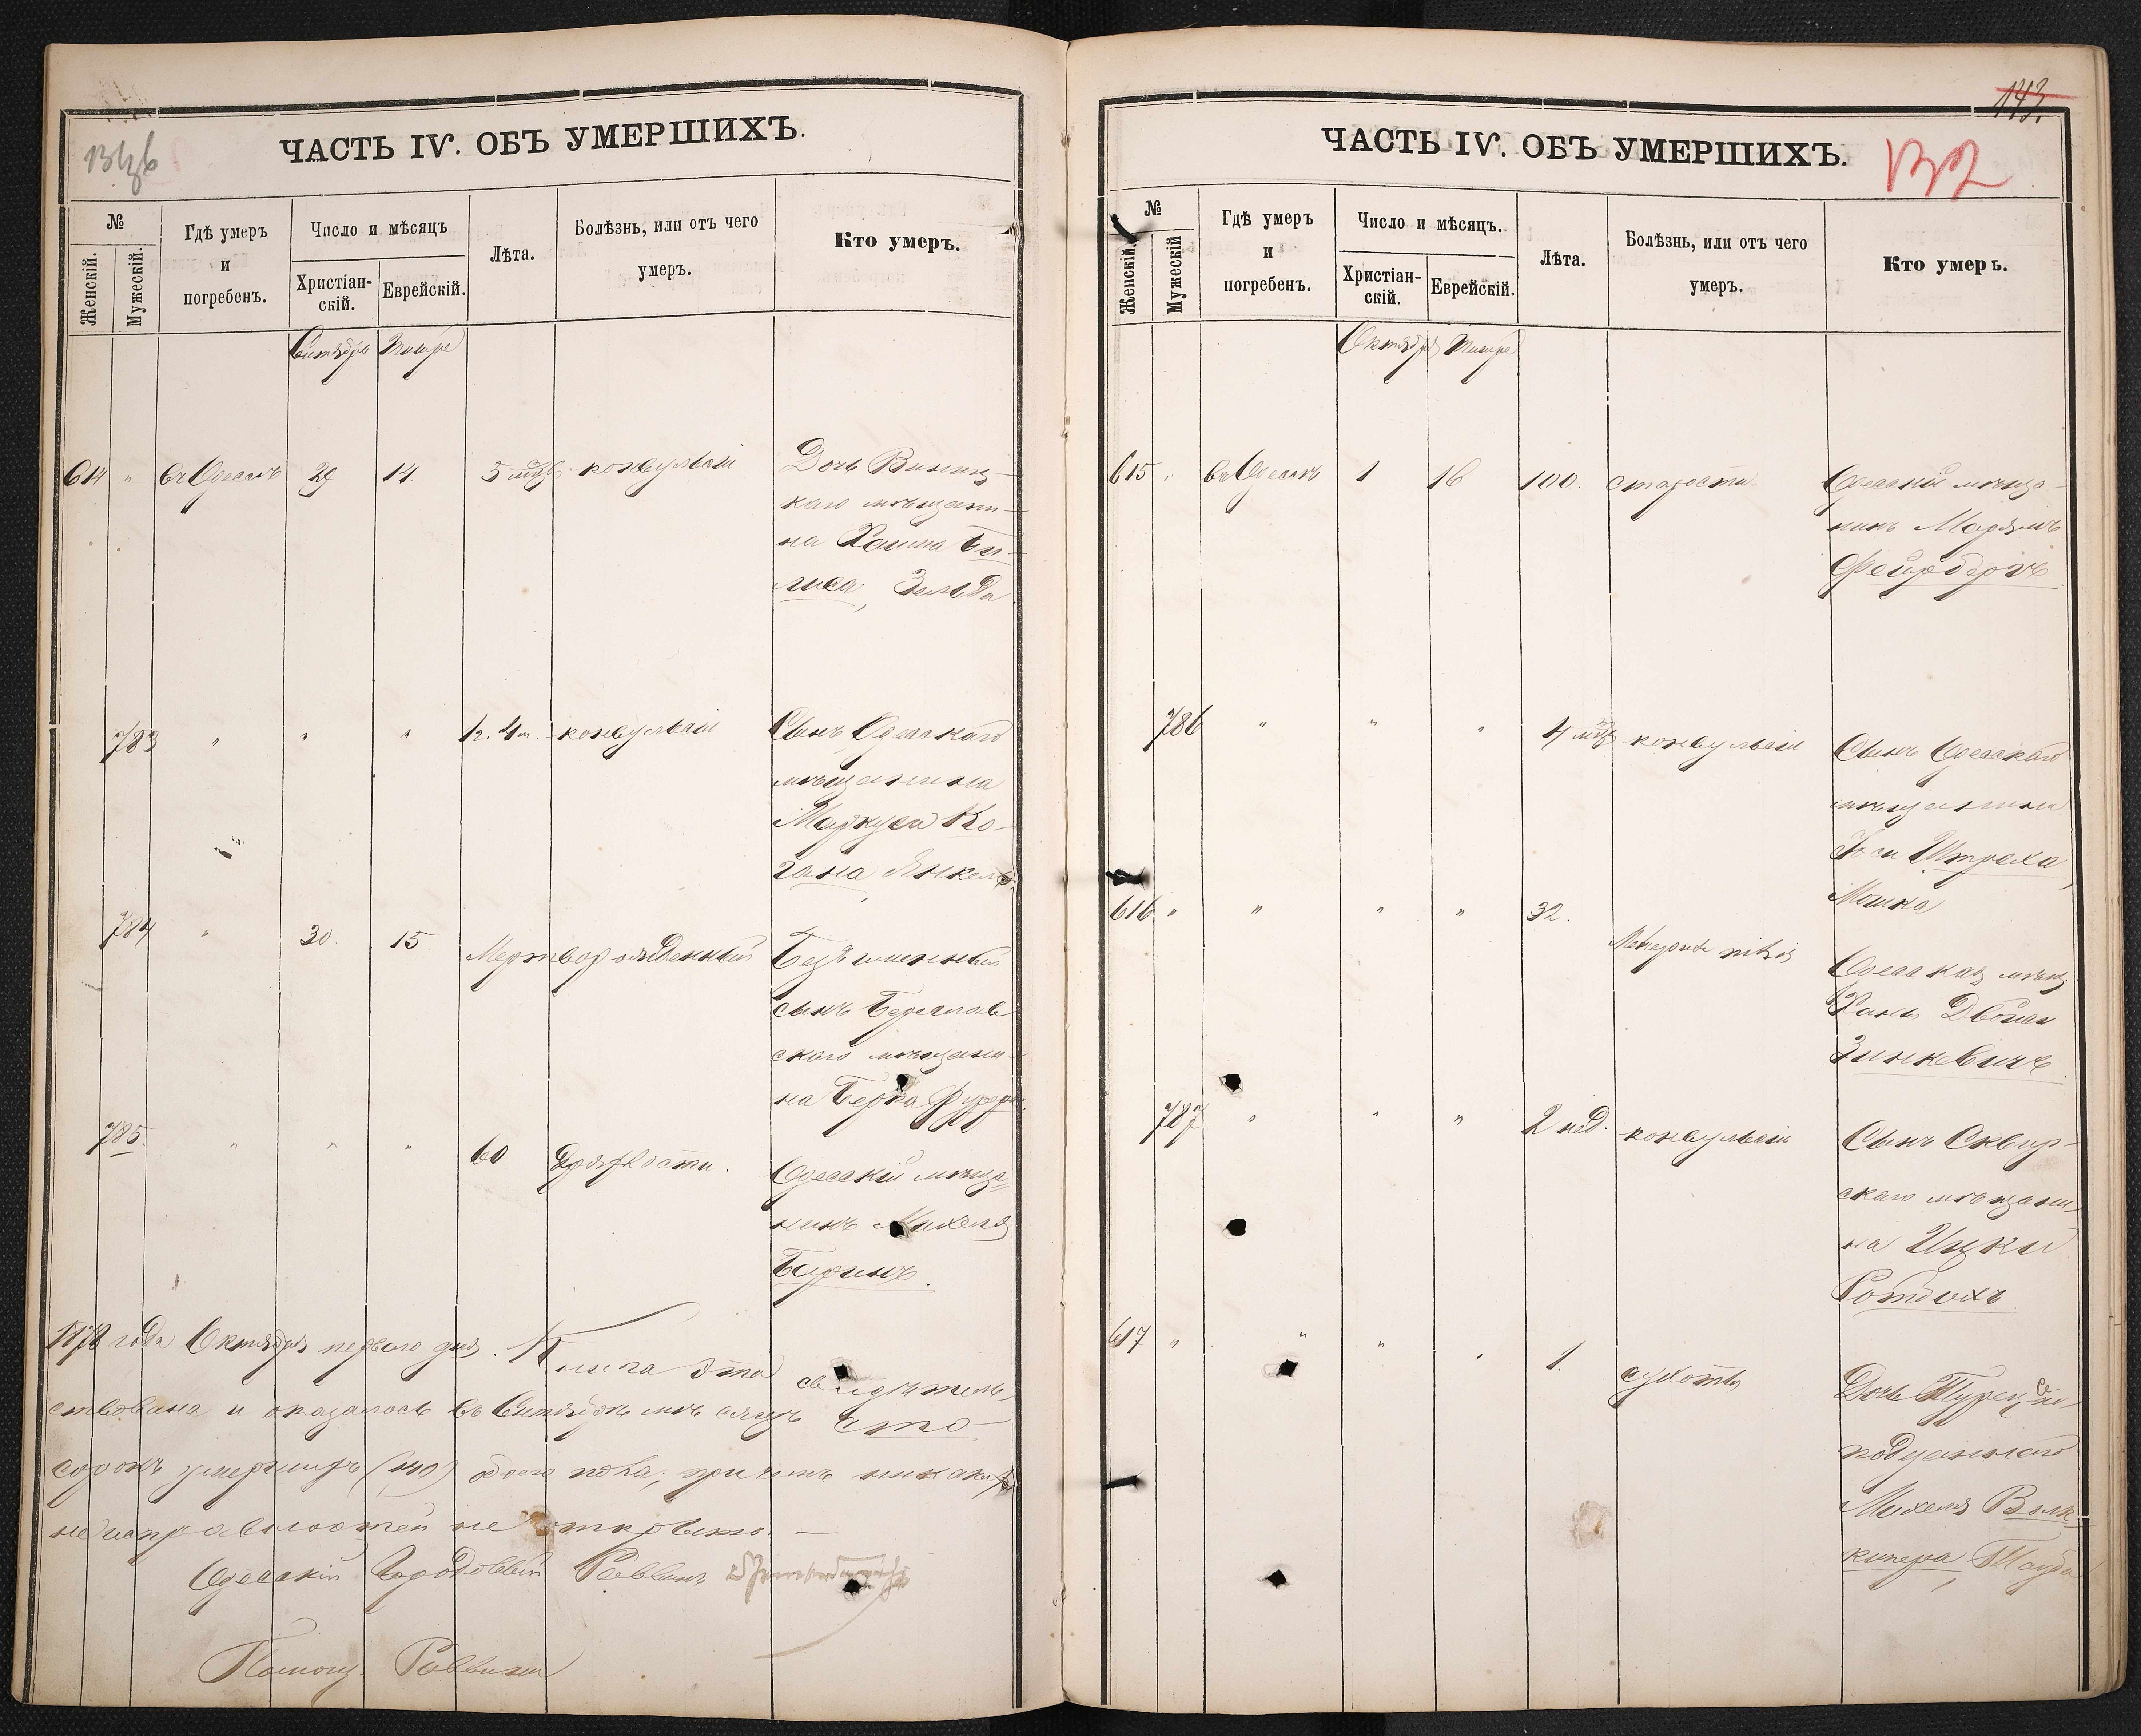 ЧАСТЬ IV. ОБЪ УМЕРШИХЪ.
№
Женскій.
Мужескій.
Гдѣ умеръ
и
погребенъ.
Число и мѣсяцъ
Христіан-
скій.
Еврейскій.
Лѣта.
Болѣзнь, или отъ чего
умеръ.
Кто умеръ.
Сентября Тишре
614 " въ Одессѣ 29 14 5 мѣс. конвульсіи Дочь Винниц-
каго мѣщани-
на Хаима
Зельда
783 " " " 1 г. 4 м. конвульсіи Сынъ Одесскаго
мѣщанина
Маркуса Ко-
гана Янкель
784 " 30. 15. Мертворожденный Безъименный
сынъ Береслав
скаго мѣщани-
на Берка
785. " " " 60 дряхлости. Одесскій мѣща-
нинъ Михель
1878 года Октября перваго дня. Книга эта свидѣтель-
ствована и оказалось въ Сентябрѣ мѣсяцѣ сто
сорокъ умершихъ (140) обоего пола; при чемъ никакихъ
неисправностей не открыто. —
Одесскій Городовый Раввинъ
Помощ. Раввина
143.
ЧАСТЬ IV. ОБЪ УМЕРШИХЪ.
132
№
Женскій.
Мужескій
Гдѣ умеръ
и
погребенъ.
Число и мѣсяцъ.
Христіан-
скій.
Еврейскій.
Лѣта.
Болѣзнь, или отъ чего
умеръ.
Кто умеръ.
Октября Тишре
615 " въ Одессѣ 1 16 100. старости Одесскій мѣща-
нинъ
786 " " " 4 мѣс. конвульсіи Сынъ Одесскаго
мѣщанина
Іоси Штреха,
Мошко
616 " " " " 32. Одесская мѣщ.
Хана Двойра
Зинкевичъ
787 " " " 2 нед. конвульсіи Сынъ Сквир-
скаго мѣщани-
на Ицки
617 " " " " 1. сухотъ Дочь Турец
подданнаго
Михеля
Тауба